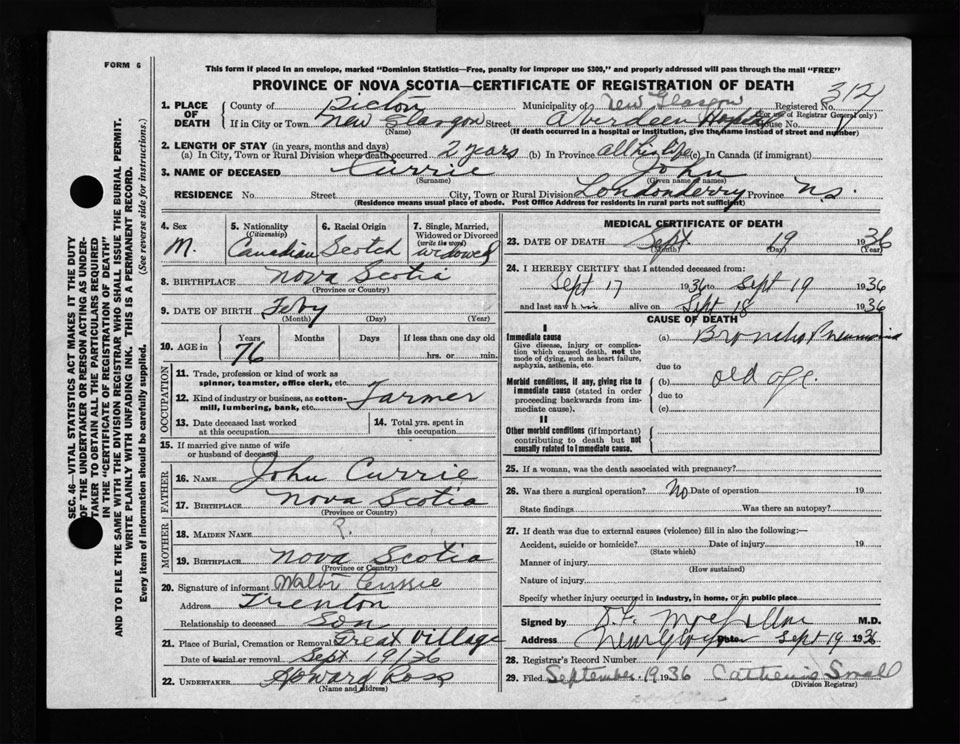 FORM 6
This form if placed in an envelope, marked "Dominion Statistics—Free, penalty for improper use $300," and properly addressed will pass through the mail "FREE"
PROVINCE OF NOVA SCOTIA—CERTIFICATE OF REGISTRATION OF DEATH
312
1. PLACE OF DEATH
County of Pictou Municipality of New Glasgow Registered No.
(For use of Registrar General only)
If in City or Town New Glasgow Street Aberdeen Hospital House No.
(Name) (If death occurred in a hospital or institution, give the name instead of street and number)
2. LENGTH OF STAY (in years, months and days)
(a) In City, Town or Rural Division where death occurred 2 years (b) In Province all his life (c) In Canada (if immigrant)
3. NAME OF DECEASED Currie John
(Surname) (Given name or names)
RESIDENCE No. Street. City, Town or Rural Division Londonderry Province N.S.
(Residence means usual place of abode. Post Office Address for residents in rural parts not sufficient)
4. Sex
M.
5. Nationality
(Citizenship)
Canadian
6. Racial Origin
Scotch
7. Single, Married, Widowed or Divorced
(write the word)
Widowed
8. BIRTHPLACE Nova Scotia
(Province or Country)
9. DATE OF BIRTH Feby
(Month) (Day) (Year)
10. AGE in
Years Months Days If less than one day old
76 hrs. or min.
OCCUPATION
11. Trade, profession or kind of work as spinner, teamster, office clerk, etc.
12. Kind of industry or business, as cotton-mill, lumbering, bank, etc. Farmer
13. Date deceased last worked at this occupation
14. Total yrs. spent in this occupation
15. If married give name of wife or husband of deceased
FATHER
16. NAME John Currie
17. BIRTHPLACE Nova Scotia
(Province or Country)
MOTHER
18. MAIDEN NAME ?
19. BIRTHPLACE Nova Scotia
(Province or Country)
20. Signature of informant Currie
Address Trenton
Relationship to deceased Son
21. Place of Burial, Cremation or Removal Great Village
Date of burial or removal Sept 19/36
22. UNDERTAKER Howard Ross
(Name and address)
MEDICAL CERTIFICATE OF DEATH
23. DATE OF DEATH Sept. 19 1936
(Month) (Day) (Year)
24. I HEREBY CERTIFY that I attended deceased from:
Sept 17 1936 to Sept 19 1936
and last saw h im alive on Sept 18 1936
CAUSE OF DEATH
I
Immediate cause
Give disease, injury or complication which caused death, not the mode of dying, such as heart failure, asphyxia, asthenia, etc.
(a) Broncho Pneumonia
due to
Morbid conditions, if any, giving rise to immediate cause (stated in order proceeding backwards from immediate cause).
(b) old age.
due to
(c)
II
Other morbid conditions (if important) contributing to death but not causally related to immediate cause.
25. If a woman, was the death associated with pregnancy?
26. Was there a surgical operation? No Date of operation 19
State findings Was there an autopsy?
27. If death was due to external causes (violence) fill in also the following:—
Accident, suicide or homicide? Date of injury 19
(State which)
Manner of injury
(How sustained)
Nature of injury
Specify whether injury occurred in industry, in home, or in public place
Signed by M.D.
Address New Glasgow Date Sept 19 1936
28. Registrar's Record Number
29. Filed September 19 1936 Catherine Small
(Division Registrar)
SEC. 46—VITAL STATISTICS ACT MAKES IT THE DUTY OF THE UNDERTAKER OR PERSON ACTING AS UNDERTAKER TO OBTAIN ALL THE PARTICULARS REQUIRED IN THE "CERTIFICATE OF REGISTRATION OF DEATH" AND TO FILE THE SAME WITH THE DIVISION REGISTRAR WHO SHALL ISSUE THE BURIAL PERMIT.
WRITE PLAINLY WITH UNFADING INK. THIS IS A PERMANENT RECORD.
Every item of information should be carefully supplied. (See reverse side for instructions.)